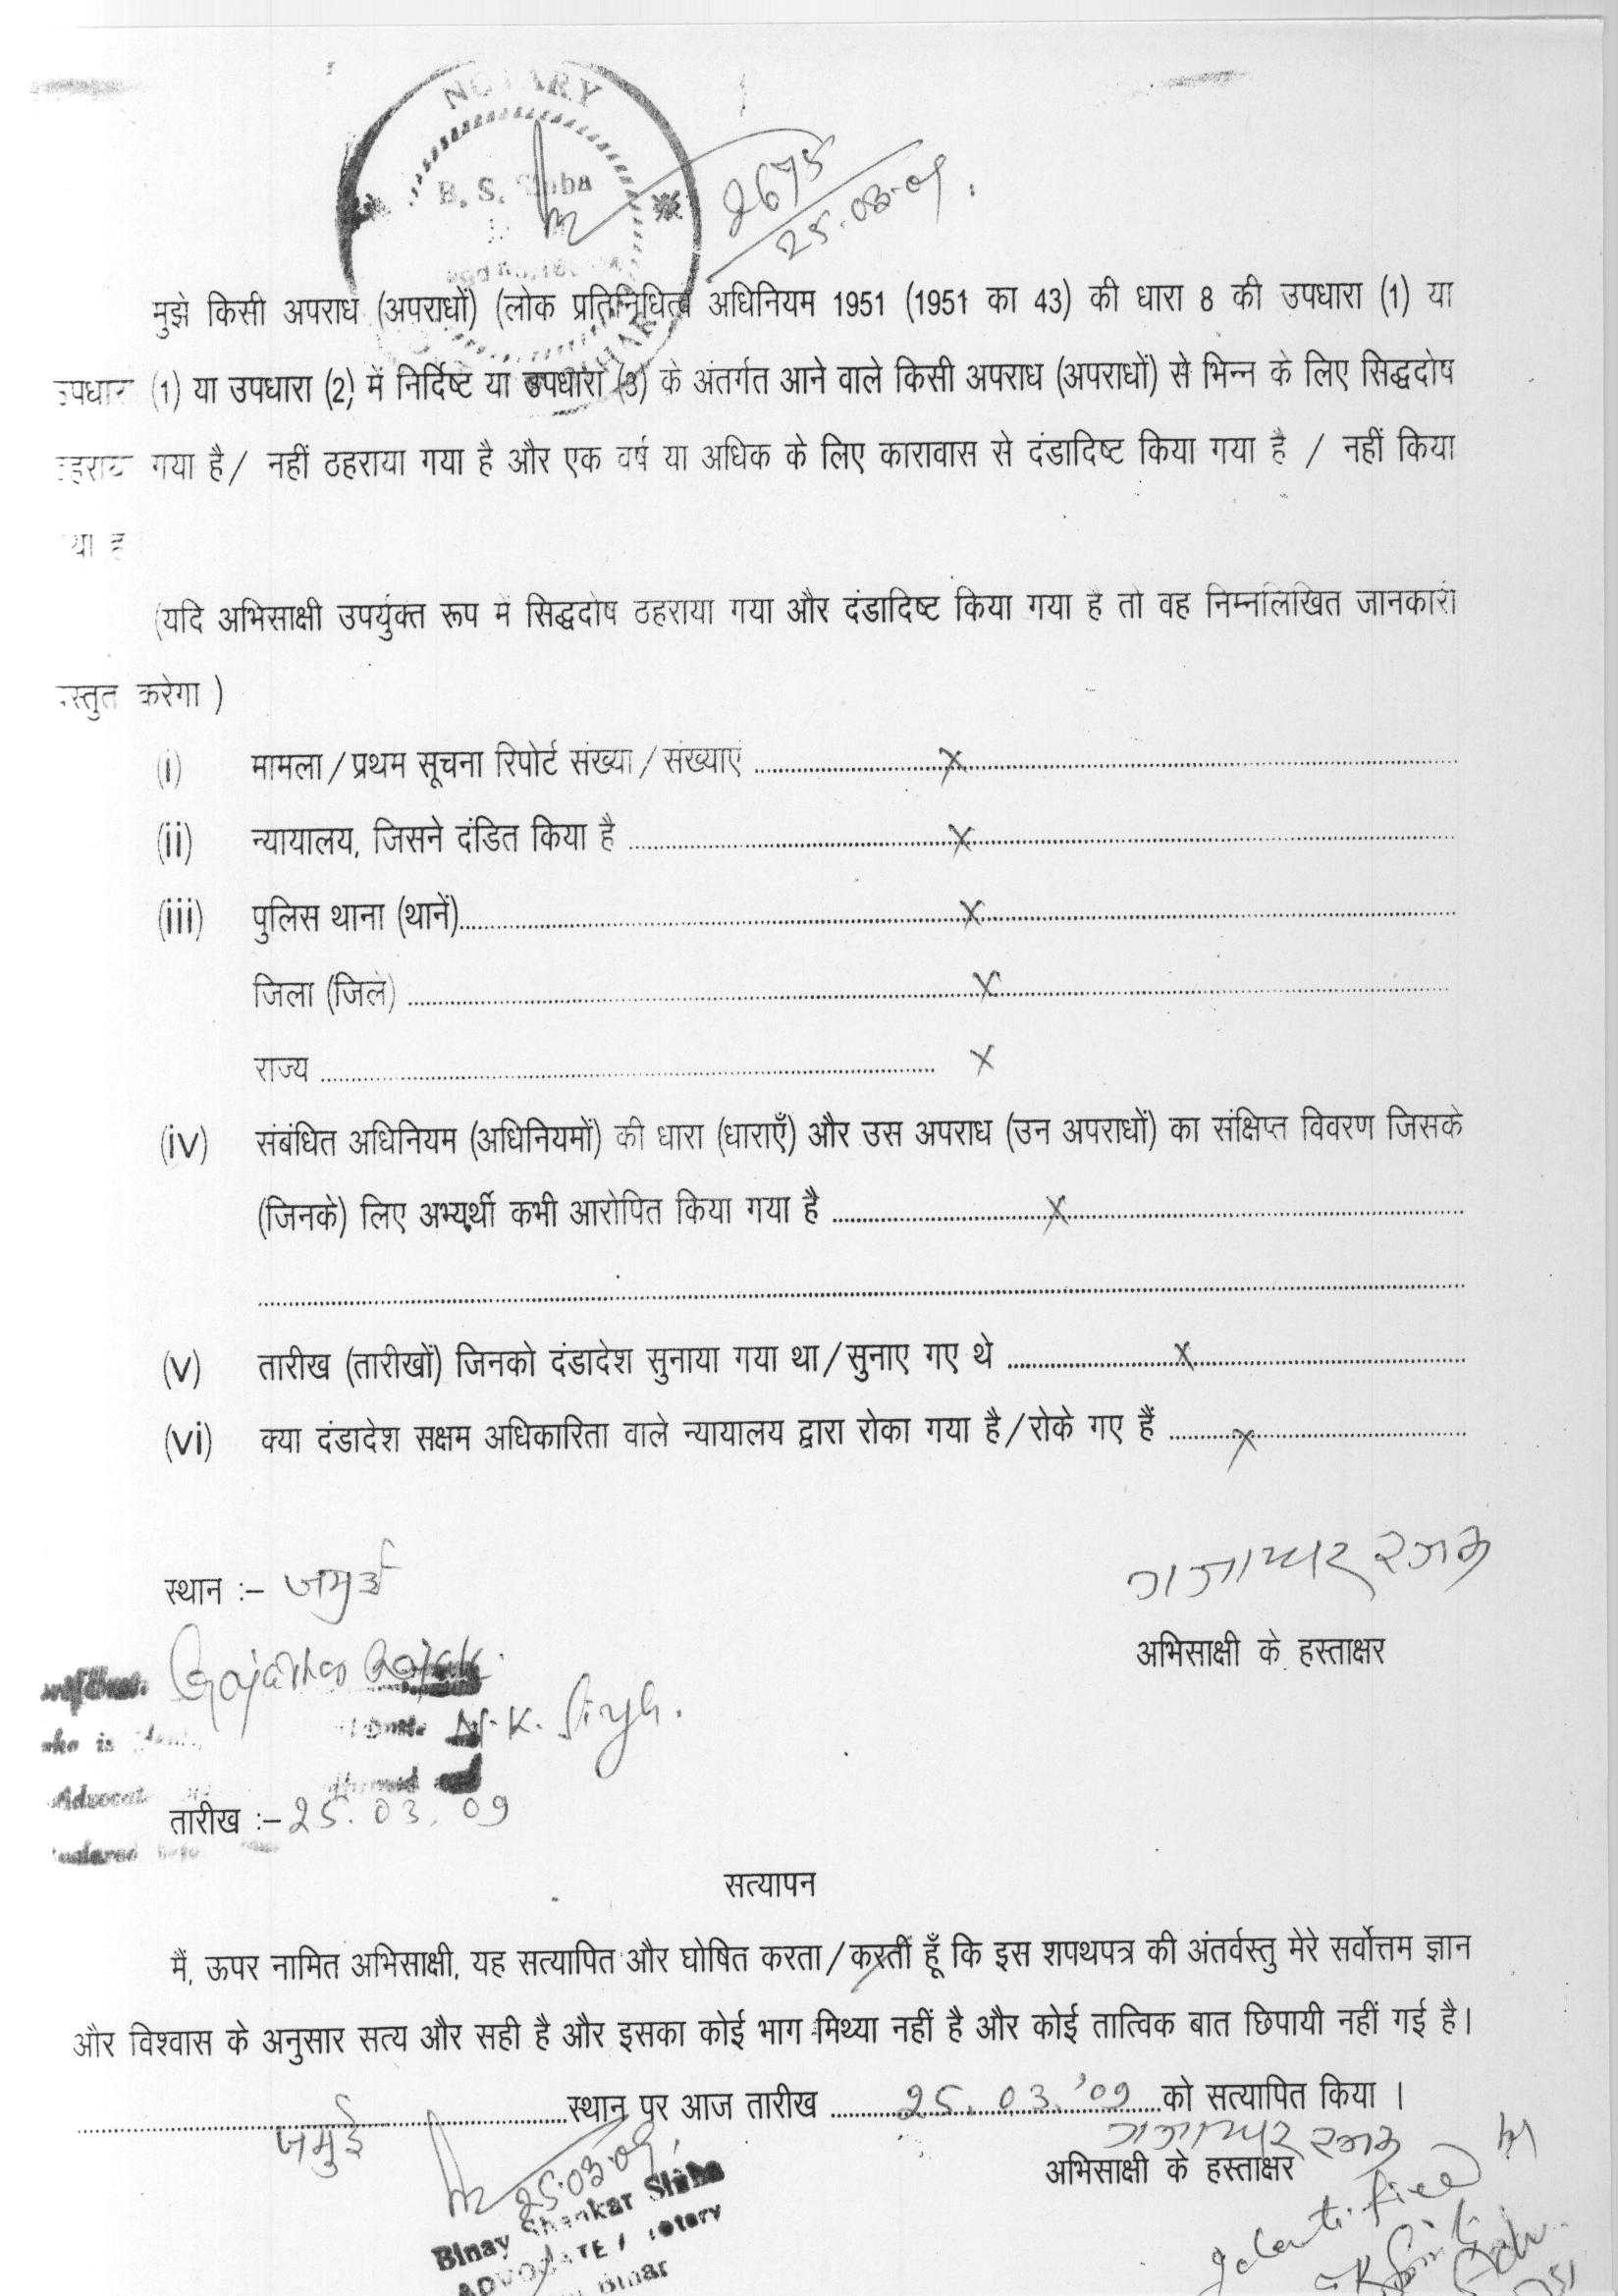 NOTARY
B. S. Sinha
2675
25.03.09.
मुझे किसी अपराध (अपराधों) (लोक प्रतिनिधित्व अधिनियम 1951 (1951 का 43) की धारा 8 की उपधारा (1) या
उपधारा (1) या उपधारा (2) में निर्दिष्ट या उपधारा (3) के अंतर्गत आने वाले किसी अपराध (अपराधों) से भिन्न के लिए सिद्धदोष
ठहराया गया है/ नहीं ठहराया गया है और एक वर्ष या अधिक के लिए कारावास से दंडादिष्ट किया गया है / नहीं किया
गया है
(यदि अभिसाक्षी उपर्युक्त रूप में सिद्धदोष ठहराया गया और दंडादिष्ट किया गया है तो वह निम्नलिखित जानकारी
प्रस्तुत करेगा )
(i) मामला/प्रथम सूचना रिपोर्ट संख्या/संख्याएं .......... X
(ii) न्यायालय, जिसने दंडित किया है .......... X
(iii) पुलिस थाना (थानें).......... X
जिला (जिले) .......... X
राज्य .......... X
(iv) संबंधित अधिनियम (अधिनियमों) की धारा (धाराएँ) और उस अपराध (उन अपराधों) का संक्षिप्त विवरण जिसके
(जिनके) लिए अभ्यर्थी कभी आरोपित किया गया है .......... X
(v) तारीख (तारीखों) जिनको दंडादेश सुनाया गया था/सुनाए गए थे .......... X
(vi) क्या दंडादेश सक्षम अधिकारिता वाले न्यायालय द्वारा रोका गया है/रोके गए हैं .......... X
गजाधर रजक
स्थान :– जमुई
अभिसाक्षी के हस्ताक्षर
Gajadhar Rajak.
who is N.K. Singh.
Advocate
तारीख :– 25.03.09
सत्यापन
मैं, ऊपर नामित अभिसाक्षी, यह सत्यापित और घोषित करता/करती हूँ कि इस शपथपत्र की अंतर्वस्तु मेरे सर्वोत्तम ज्ञान
और विश्वास के अनुसार सत्य और सही है और इसका कोई भाग मिथ्या नहीं है और कोई तात्विक बात छिपायी नहीं गई है।
जमुई ..........स्थान पर आज तारीख .......... 25.03.'09 ..........को सत्यापित किया ।
गजाधर रजक
अभिसाक्षी के हस्ताक्षर
25.03.09
Binay Shankar Sinha
ADVOCATE / Notary
Bihar